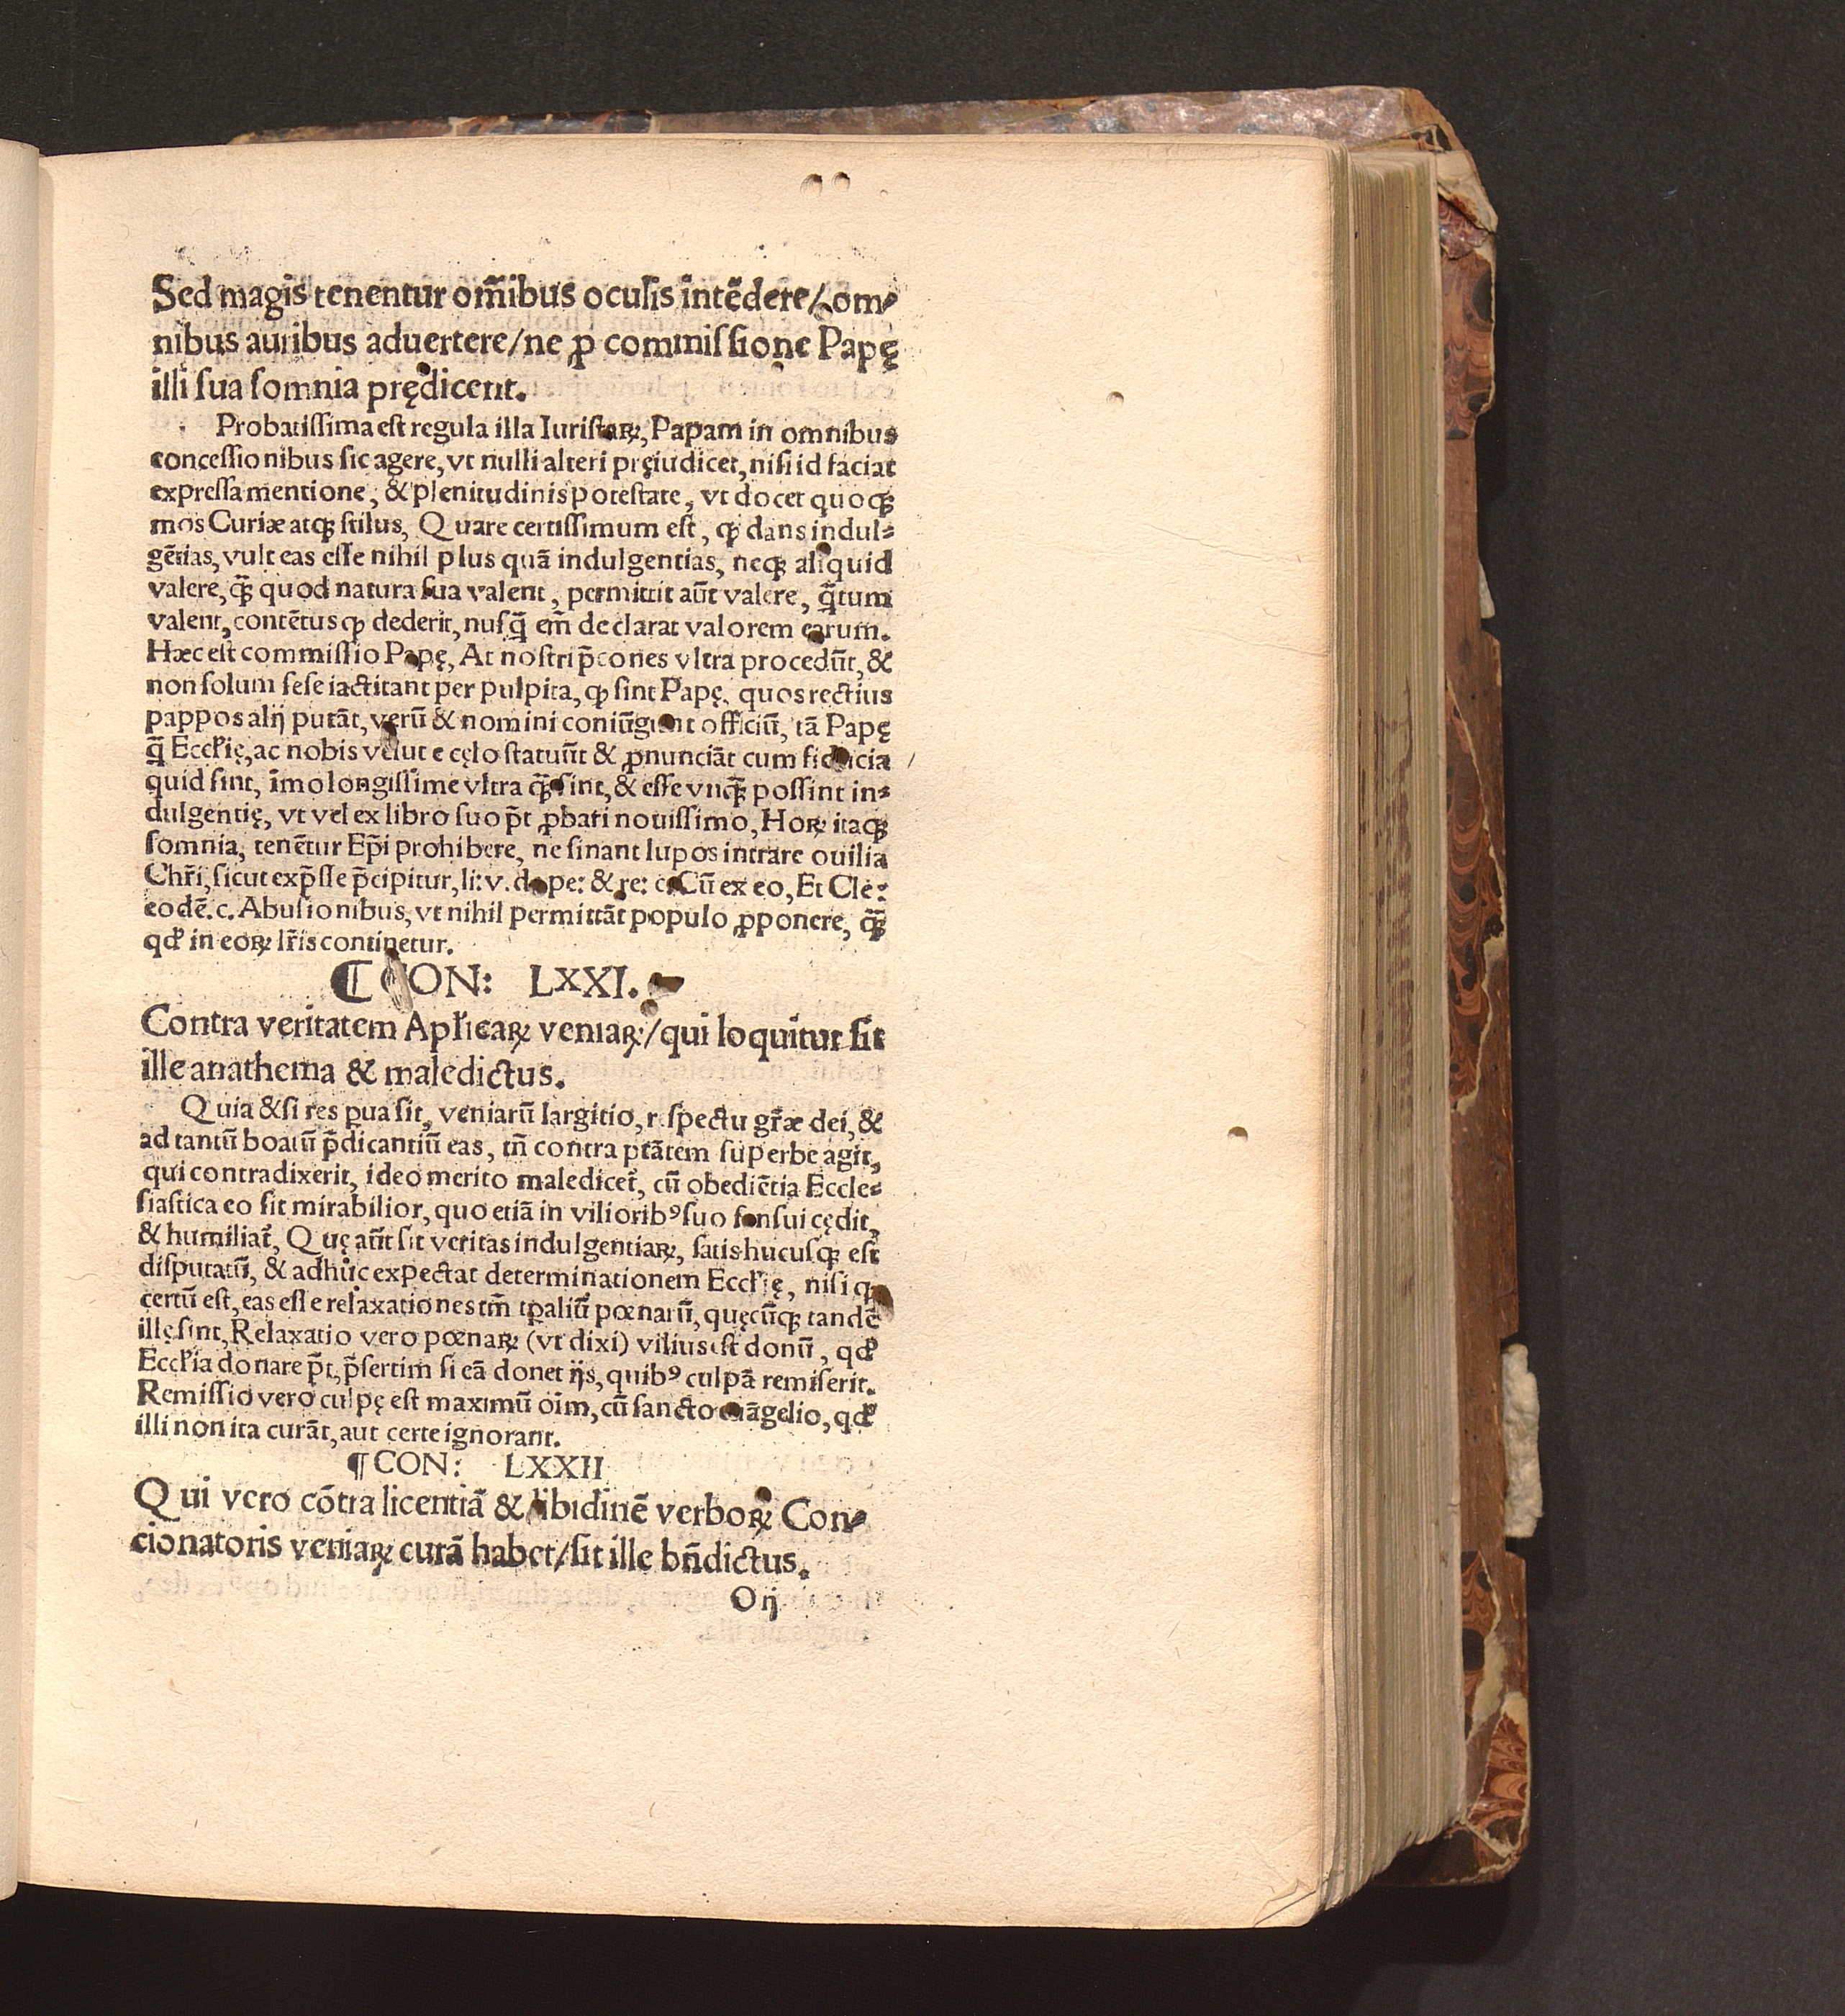 Sed magis tenentur om̃ibus oculis intẽdere/ om⸗
nibus auribus aduertere/ne ꝓ commissione Papę
illi sua somnia prędicent.
Probatissima est regula illa Iuristaꝝ, Papam in omnibus
concessionibus sic agere, vt nulli alteri pręiudicet, nisi id faciat
expressa mentione, & plenitudinis potestate, vt docet quoqꝫ
mos Curiæ atqꝫ stilus, Quare certissimum est, ꝙ dans indul⸗
gẽtias, vult eas esse nihil plus quã indulgentias, neqꝫ aliquid
valere, q̃ꝫ quod natura sua valent, permittit aũt valere, q̃tum
valent, contẽtus ꝙ dederit, nusq̃ em̃ declarat valorem earum.
Hæc est commissio Papę, At nostri p̃cones vltra procedũt, &
non solum sese iactitant per pulpita, ꝙ sint Papę, quos rectius
pappos alij putãt, verũ & nomini coniũgunt officiũ, tã Papę
q̃ Eccľię, ac nobis velut e cęlo statuũt & ꝓnunciãt cum fiducia
quid sint, imo longissime vltra q̃ꝫ sint, & esse vnq̃ꝫ possint in⸗
dulgentię, vt vel ex libro suo p̃t ꝓbari nouissimo, Hoꝝ itaqꝫ
somnia, tenẽtur Ep̃i prohibere, ne sinant lupos intrare ouilia
Chr̃i, sicut exp̃sse p̃cipitur, li: v. de pe: & re: c. Cũ ex eo, Et Cle:
eodẽ. c. Abusionibus, vt nihil permittãt populo ꝓponere, q̃ꝫ
qď in eoꝝ lr̃is continetur.
¶ CON: LXXI.
Contra veritatem Apľicaꝝ veniaꝝ/qui loquitur sit
ille anathema & maledictus.
Quia & si res ꝑua sit, veniarũ largitio, respectu gr̃æ dei, &
ad tantũ boatũ p̃dicantiũ eas, tñ contra ptãtem superbe agit,
qui contradixerit, ideo merito maledicet᷑, cũ obediẽtia Eccle⸗
siastica eo sit mirabilior, quo etiã in vilioribꝰ suo sensui cędit,
& humiliat᷑, Quę aũt sit veritas indulgentiaꝝ, satis hucusqꝫ est
disputatũ, & adhuc expectat determinationem Eccľię, nisi ꝙ
certũ est, eas esse relaxationes tm̃ tꝑaliũ pœnarũ, quęcũqꝫ tandẽ
illę sint, Relaxatio vero pœnaꝝ (vt dixi) vilius est donũ, qď
Eccľia donare p̃t, p̃sertim si eã donet ijs, quibꝰ culpã remiserit.
Remissio vero culpę est maximũ oĩm, cũ sancto euãgelio, qď
illi non ita curãt, aut certe ignorant.
¶CON: LXXII
Qui vero cõtra licentiã & libidinẽ verboꝝ Con⸗
cionatoris veniaꝝ curã habet/sit ille bñdictus.
O ij